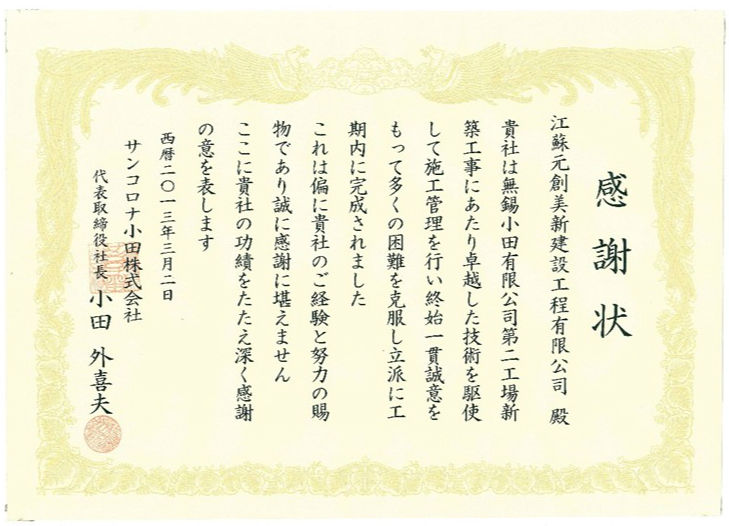 感謝状
江蘇元創美新建設工程有限公司 殿
貴社は無錫小田有限公司第二工場新
築工事にあたり卓越した技術を駆使
して施工管理を行い終始一貫誠意を
もって多くの困難を克服し立派に工
期内に完成されました
これは偏に貴社のご経験と努力の賜
物であり誠に感謝に堪えません
ここに貴社の功績をたたえ深く感謝
の意を表します
西暦二〇一三年三月二日
サンコロナ小田株式会社
代表取締役社長 小田 外喜夫